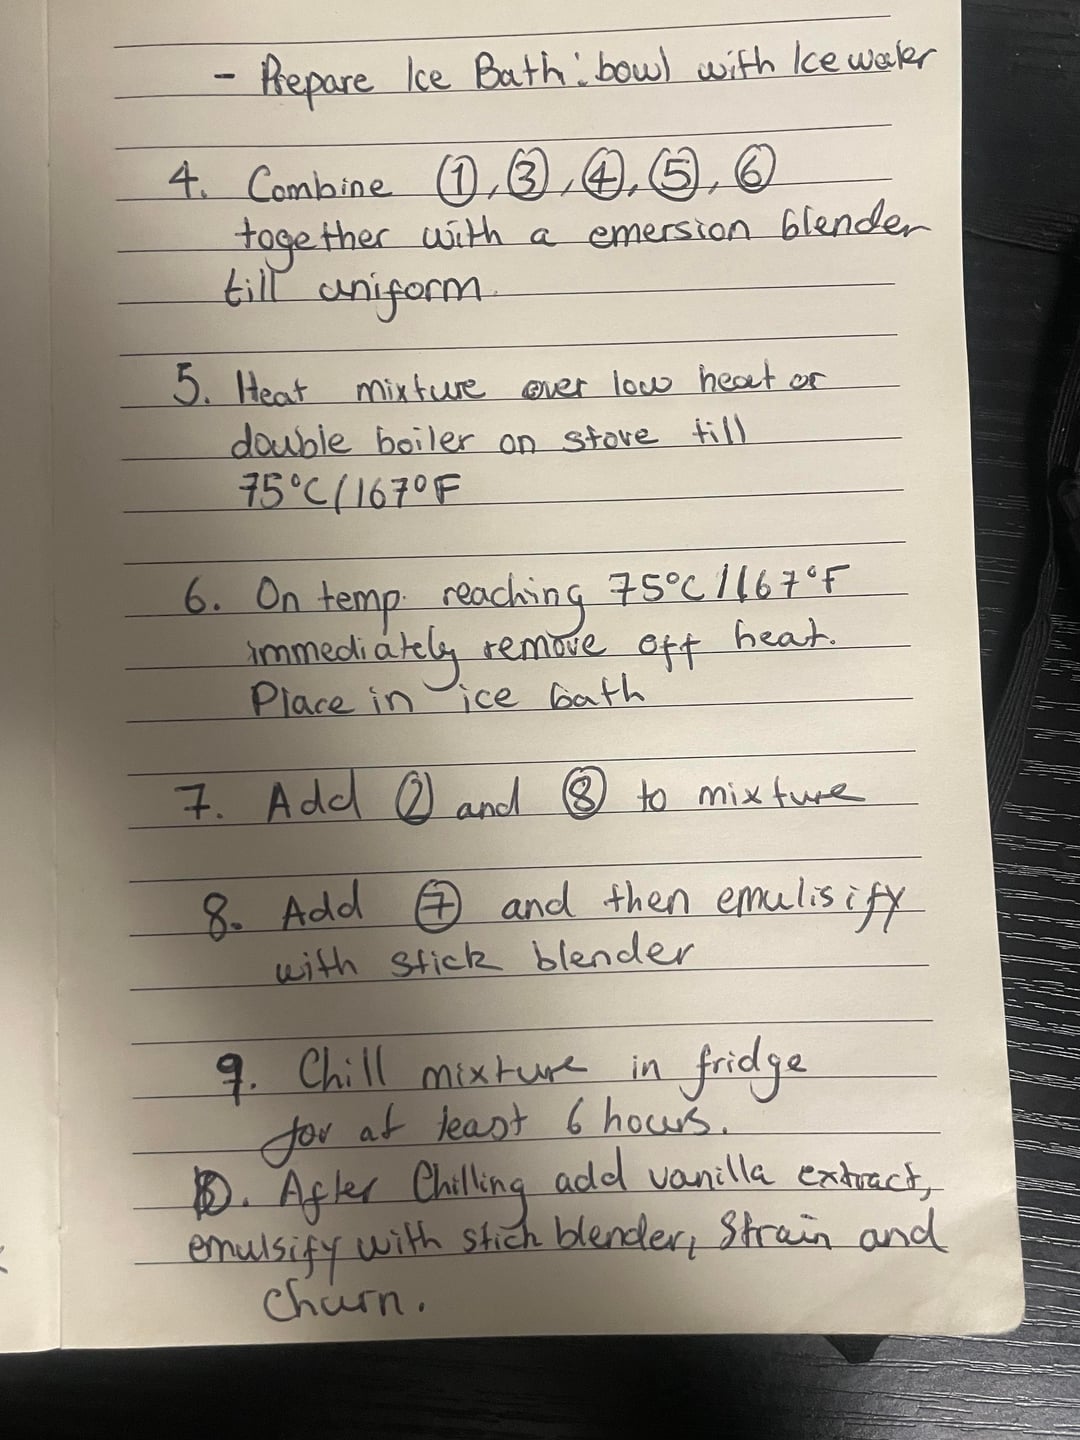 - Prepare Ice Bath: bowl with Ice water
4. Combine ①, ③, ④, ⑤, ⑥
together with a emersion blender
till uniform.
5. Heat mixture over low heat or
double boiler on stove till
75°C/167°F
6. On temp. reaching 75°C/167°F
immediately remove off heat.
Place in ice bath
7. Add ② and ⑧ to mixture
8. Add ⑦ and then emulisify
with stick blender
9. Chill mixture in fridge
for at least 6 hours.
10. After Chilling add vanilla extract,
emulsify with stich blender, Strain and
churn.